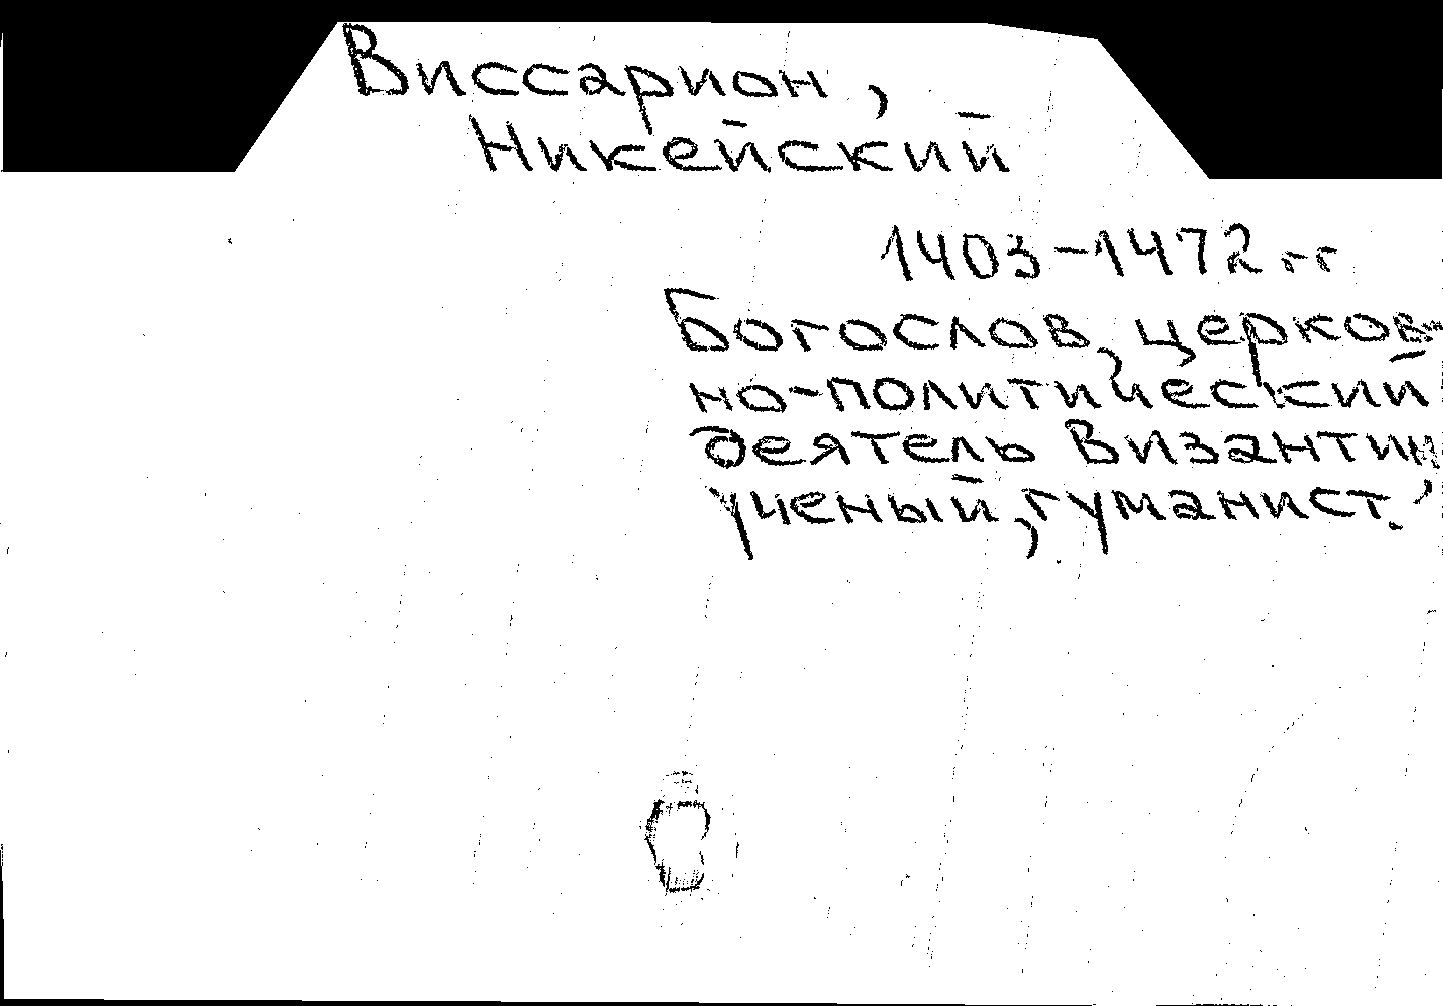 Виссарион,
Никейский
1403-1472 гг
Богослов, церков-
но-политический
деятель Византии,
ученый, гуманист.